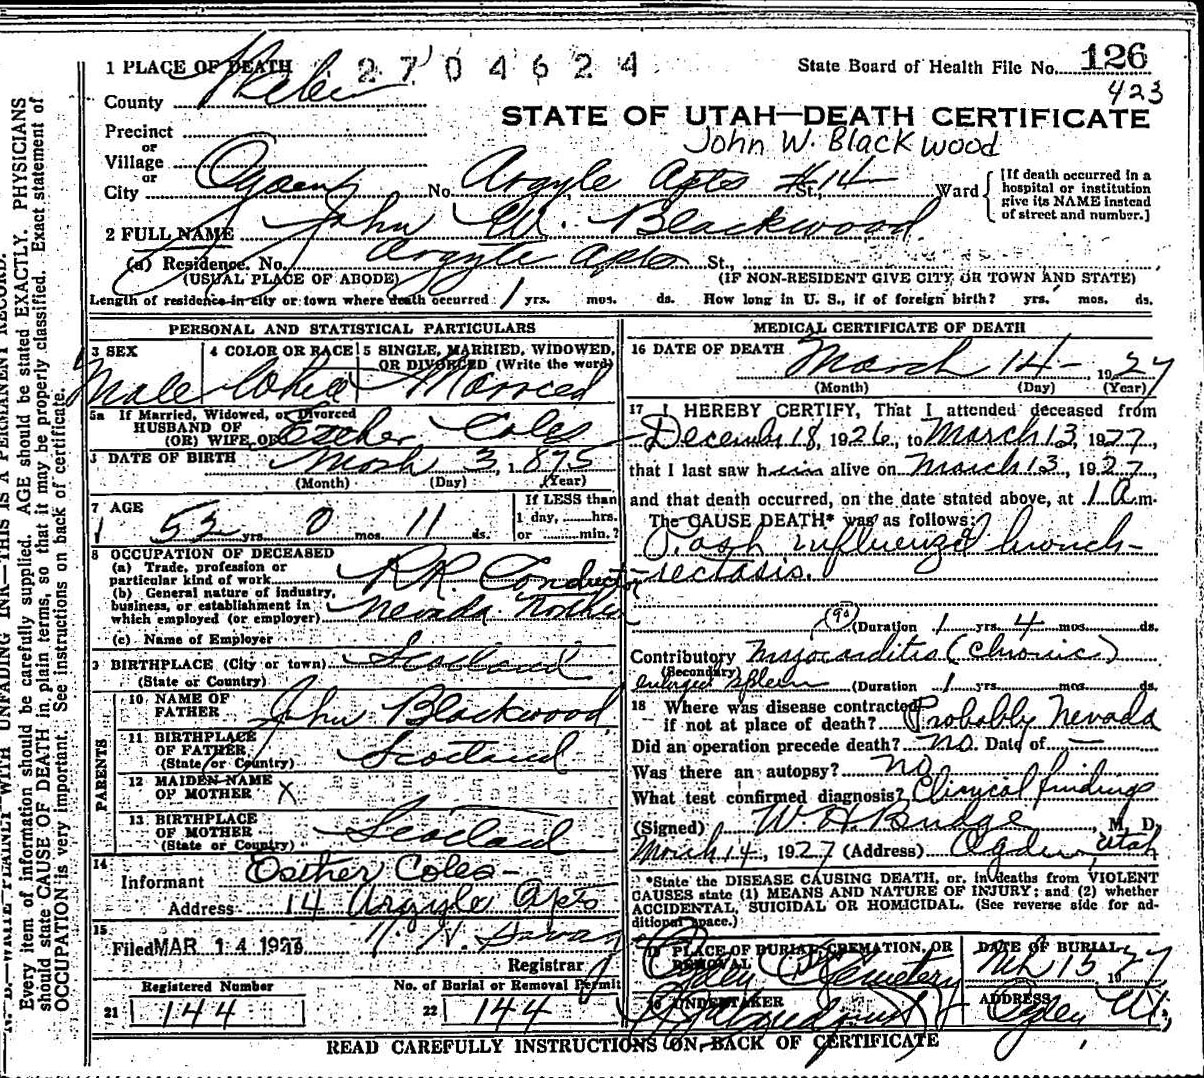 1 PLACE OF DEATH 2704624 State Board of Health File No. 126
423
County Weber
STATE OF UTAH—DEATH CERTIFICATE
Precinct
John W. Blackwood
or
Village
or
City Ogden No. Argyle Apts #14 St., Ward [If death occurred in a hospital or institution give its NAME instead of street and number.]
2 FULL NAME John W. Blackwood
(a) Residence. No. Argyle Apts St.,
(USUAL PLACE OF ABODE) (IF NON-RESIDENT GIVE CITY OR TOWN AND STATE)
Length of residence in city or town where death occurred 1 yrs. mos. ds. How long in U. S., if of foreign birth? yrs. mos. ds.
PERSONAL AND STATISTICAL PARTICULARS
3 SEX 4 COLOR OR RACE 5 SINGLE, MARRIED, WIDOWED,
OR DIVORCED (Write the word)
Male White Married
5a If Married, Widowed, or Divorced
HUSBAND OF
(OR) WIFE OF Esther Coles
DATE OF BIRTH Mch 3, 1875
(Month) (Day) (Year)
7 AGE If LESS than
1 day, hrs.
52 yrs. 0 mos. 11 ds. or min.?
8 OCCUPATION OF DECEASED
(a) Trade, profession or
particular kind of work R.R. Conductor
(b) General nature of industry,
business, or establishment in
which employed (or employer) Nevada Northern
(c) Name of Employer
9 BIRTHPLACE (City or town) Scotland
(State or Country)
PARENTS
10 NAME OF
FATHER John Blackwood
11 BIRTHPLACE
OF FATHER
(State or Country) Scotland
12 MAIDEN NAME
OF MOTHER X
13 BIRTHPLACE
OF MOTHER
(State or Country) Scotland
14
Informant Esther Coles
Address 14 Argyle Apts
15
Filed MAR 14 1927
Registrar
Registered Number No. of Burial or Removal Permit
21 144 22 144
MEDICAL CERTIFICATE OF DEATH
16 DATE OF DEATH March 14 - 1927
(Month) (Day) (Year)
17 I HEREBY CERTIFY, That I attended deceased from
December 18, 1926, to March 13, 1927,
that I last saw him alive on March 13, 1927,
and that death occurred, on the date stated above, at 1 a.m.
The CAUSE DEATH* was as follows:
influenzal bronch-
iectasis.
(Duration 1 yrs. 4 mos. ds.
Contributory Myocarditis (Chronic)
(Secondary)
enlarged spleen (Duration 1 yrs. mos. ds.
18 Where was disease contracted
if not at place of death? Probably Nevada
Did an operation precede death? no. Date of —
Was there an autopsy? no
What test confirmed diagnosis? Clinical findings
(Signed) W H Budge, M. D.
March 14, 1927 (Address) Ogden, Utah
*State the DISEASE CAUSING DEATH, or, in deaths from VIOLENT
CAUSES state (1) MEANS AND NATURE OF INJURY; and (2) whether
ACCIDENTAL, SUICIDAL OR HOMICIDAL. (See reverse side for ad-
ditional space.)
19 PLACE OF BURIAL, CREMATION, OR
REMOVAL
Ogden City Cemetery
DATE OF BURIAL
Mch 15 1927
20 UNDERTAKER
ADDRESS
Ogden Ut,
READ CAREFULLY INSTRUCTIONS ON BACK OF CERTIFICATE
N. B.—WRITE PLAINLY WITH UNFADING INK—THIS IS A PERMANENT RECORD.
Every item of information should be carefully supplied. AGE should be stated EXACTLY. PHYSICIANS
should state CAUSE OF DEATH in plain terms, so that it may be properly classified. Exact statement of
OCCUPATION is very important. See instructions on back of certificate.